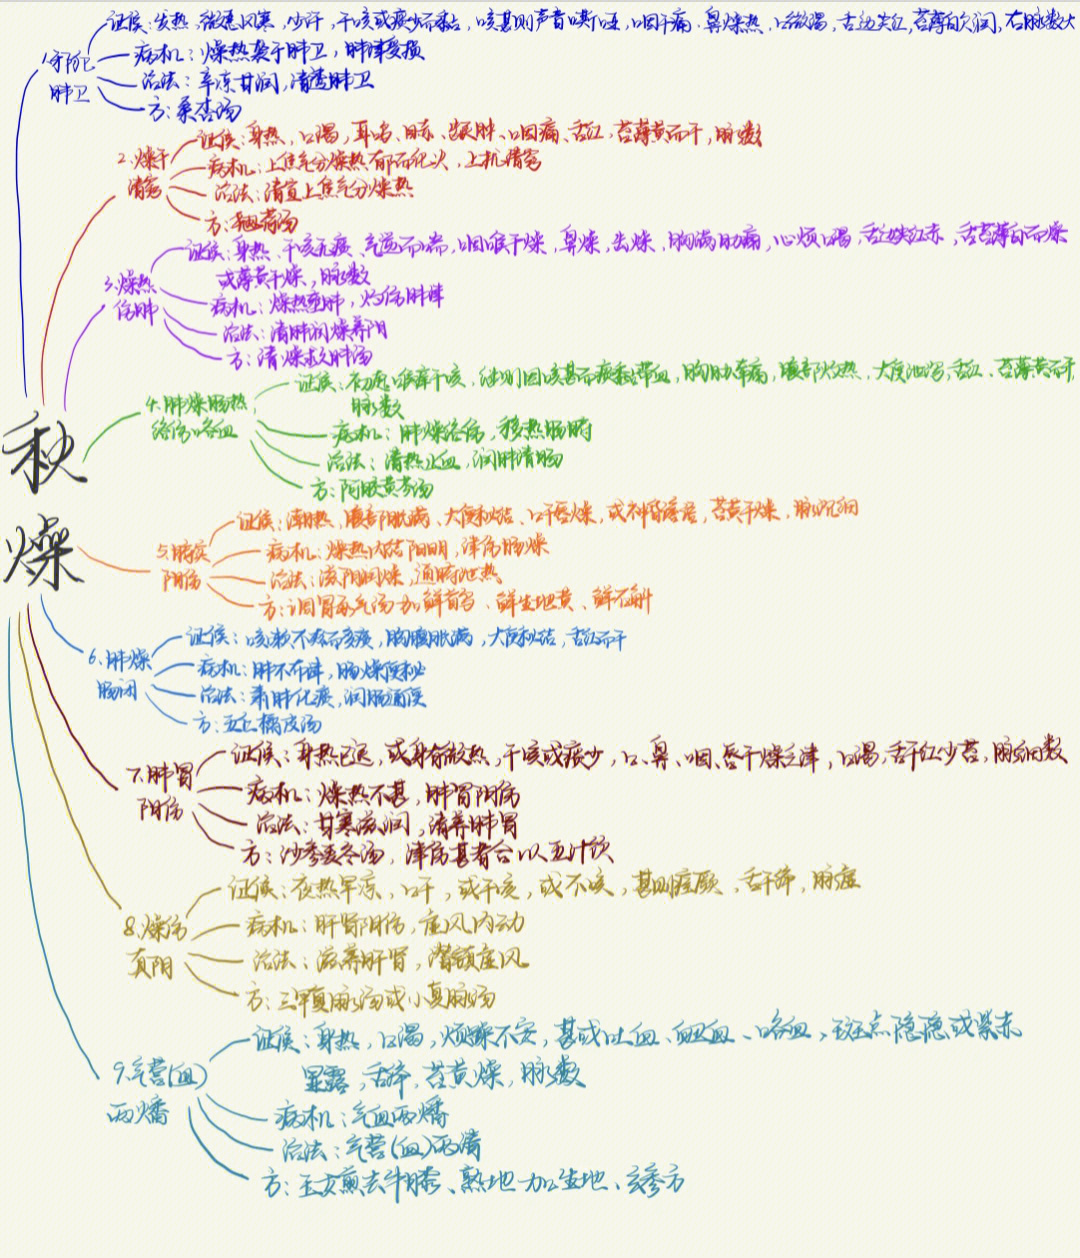 证候：发热，微恶风寒，少汗，干咳或痰少而黏，咳甚则声音嘶哑，咽干痛，鼻燥热，口微渴，舌边尖红，苔薄白欠润，右脉数大
1.邪犯
肺卫
病机：燥热袭于肺卫，肺津受损
治法：辛凉甘润，清透肺卫
方：桑杏汤
证候：身热，口渴，耳鸣、目赤、龈肿、咽痛、舌红，苔薄黄而干，脉数
2.燥干
清窍
病机：上焦气分燥热郁而化火，上扰清窍
治法：清宣上焦气分燥热
方：翘荷汤
证候：身热、干咳无痰、气逆而喘，咽喉干燥，鼻燥，齿燥，胸满胁痛，心烦口渴，舌边尖红赤，舌苔薄白而燥
或薄黄干燥，脉数
3.燥热
伤肺
病机：燥热壅肺，灼伤肺津
治法：清肺润燥养阴
方：清燥救肺汤
证候：初起喉痒干咳，继则因咳甚而痰黏带血，胸胁牵痛，腹部灼热，大便泄泻，舌红、苔薄黄而干，
脉数
4.肺燥肠热
络伤咯血
病机：肺燥络伤，移热肠腑
治法：清热止血，润肺清肠
方：阿胶黄芩汤
证候：潮热，腹部胀满、大便秘结、口干唇燥，或神昏谵语，苔黄干燥，脉沉细
5.腑实
阴伤
病机：燥热内结阳明，津伤肠燥
治法：滋阴润燥，通腑泄热
方：调胃承气汤加鲜首乌、鲜生地黄、鲜石斛
证候：咳嗽不爽而多痰，胸腹胀满，大便秘结，舌红而干
6.肺燥
肠闭
病机：肺不布津，肠燥便秘
治法：肃肺化痰，润肠通便
方：五仁橘皮汤
证候：身热已退，或身有微热，干咳或痰少，口、鼻、咽、唇干燥乏津，口渴，舌干红少苔，脉细数
7.肺胃
阴伤
病机：燥热不甚，肺胃阴伤
治法：甘寒滋润，清养肺胃
方：沙参麦冬汤，津伤甚者合以五汁饮
证候：夜热早凉，口干，或干咳，或不咳，甚则痉厥，舌干绛，脉虚
8.燥伤
真阴
病机：肝肾阴伤，虚风内动
治法：滋养肝肾，潜镇虚风
方：三甲复脉汤或小复脉汤
证候：身热，口渴，烦躁不安，甚或吐血、衄血、咯血，斑点隐隐或紫赤
显露，舌绛，苔黄燥，脉数
9.气营(血)
两燔
病机：气血两燔
治法：气营(血)两清
方：玉女煎去牛膝、熟地加生地、玄参方
秋
燥